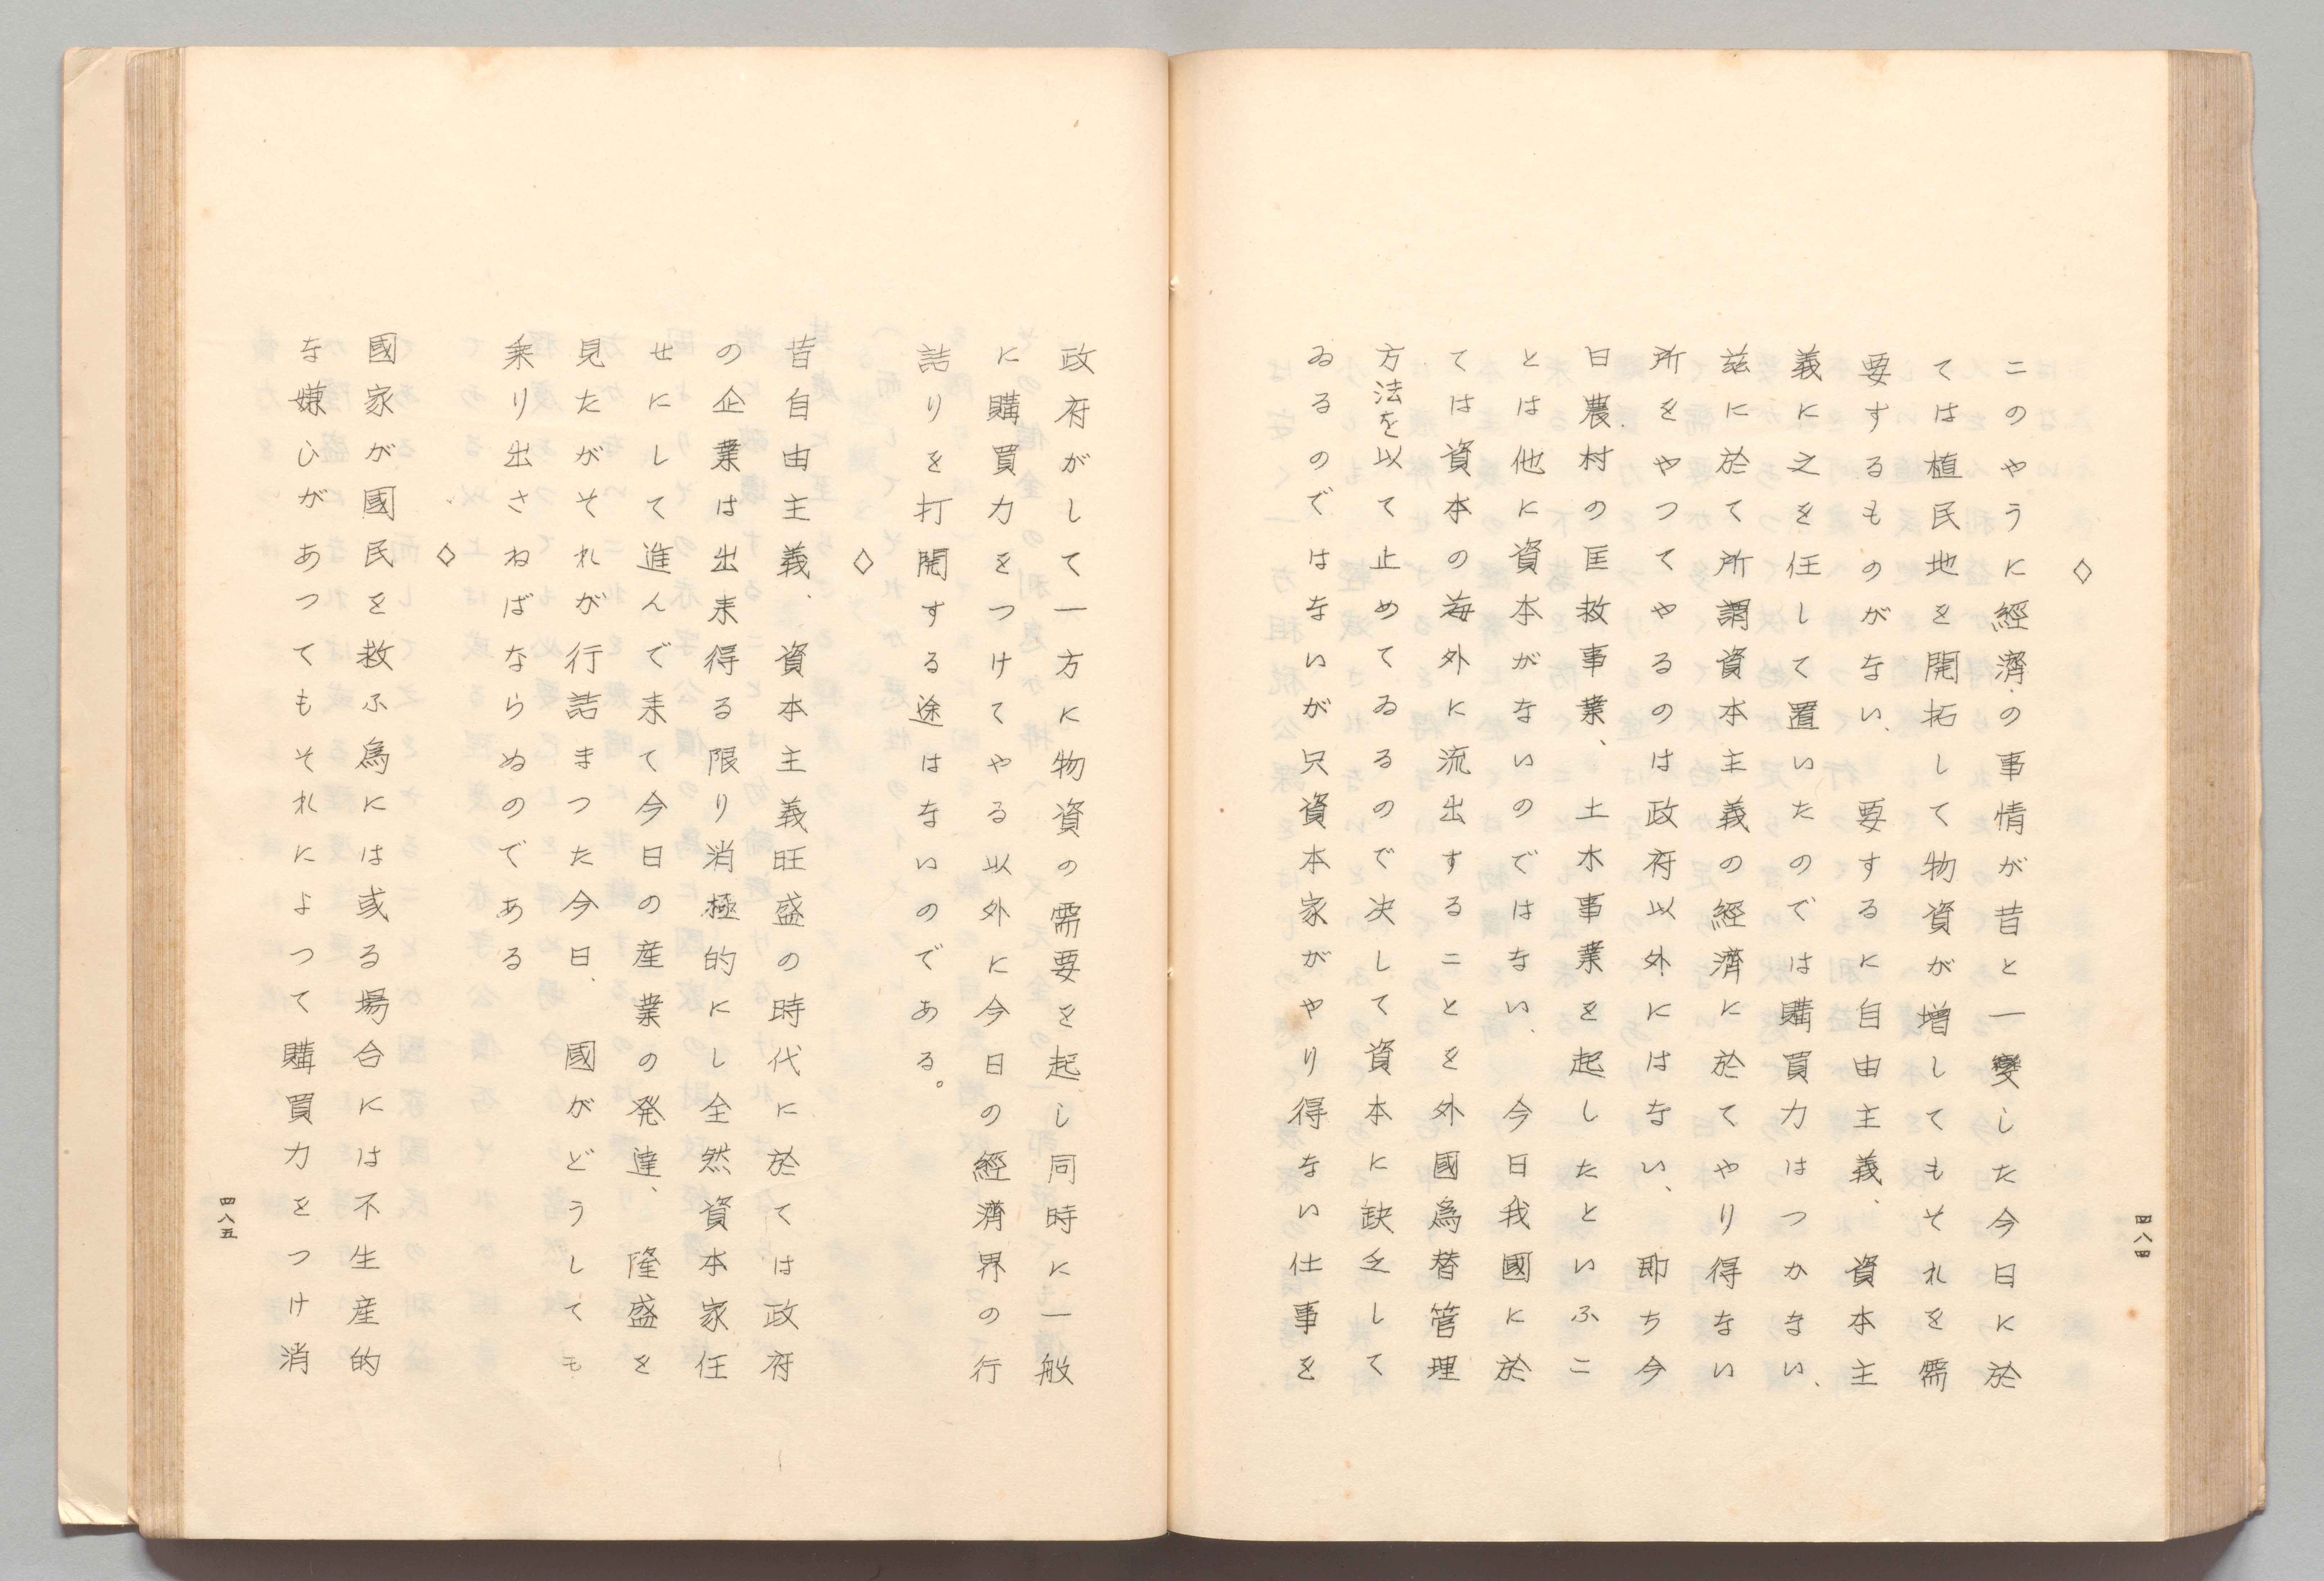 ◇
このやうに經濟の事情が昔と一變した今日に於
ては植民地を開拓して物資が増してもそれを需
要するものがない、要するに自由主義、資本主
義に之を任して置いたのでは購買力はつかない、
茲に於て所謂資本主義の經濟に於てやり得ない
所をやつてやるのは政府以外にはない、即ち今
日農村の匡救事業、土木事業を起したといふこ
とは他に資本がないのではない、今日我國に於
ては資本の海外に流出することを外國為替管理
方法を以て止めてゐるので決して資本に缺乏して
ゐるのではないが只資本家がやり得ない仕事を
四八四
政府がして一方に物資の需要を起し同時に一般
に購買力をつけてやる以外に今日の經濟界の行
詰りを打開する途はないのである。
◇
昔自由主義、資本主義旺盛の時代に於ては政府
の企業は出来得る限り消極的にし全然資本家任
せにして進んで来て今日の産業の発達、隆盛を
見たがそれが行詰まつた今日、國がどうしても
乗り出さねばならぬのである
◇
國家が國民を救ふ為には或る場合には不生産的
な嫌ひがあつてもそれによつて購買力をつけ消
四八五